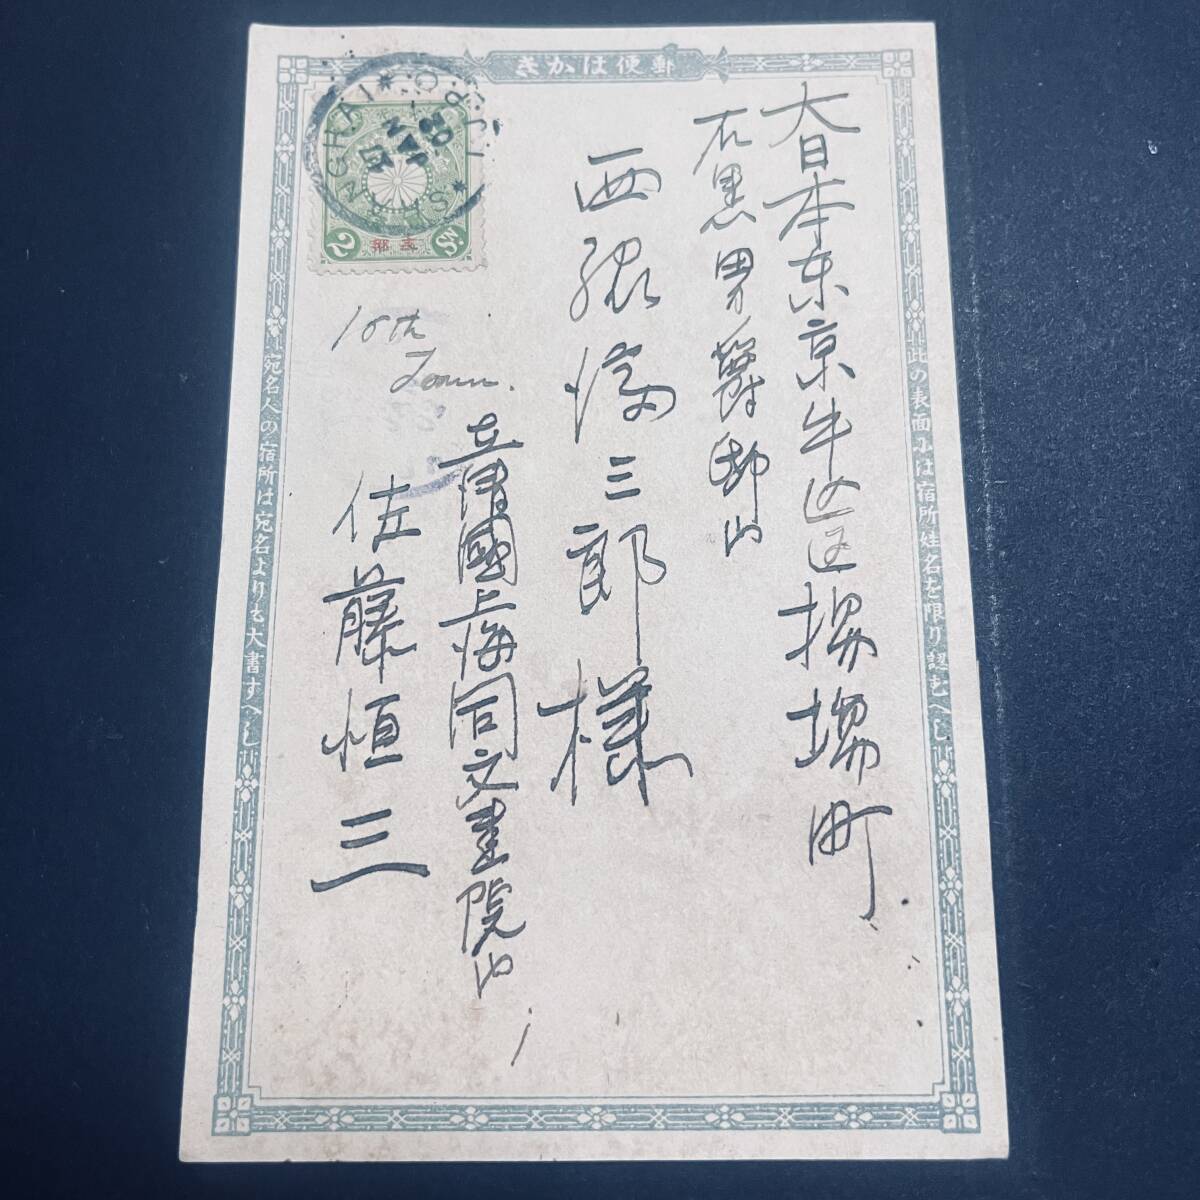 きかは便郵
此の表面には宿所姓名を限り認むへし
大日本东京牛込区揚場町
石黒男爵邸内
西源濤三郎様
在清國上海同文書院内
佐藤恒三
10th
Jan.
宛名人の宿所は宛名よりも大書すへし
SHANGHAI
I.J.P.O.
JAN
02
支那
2